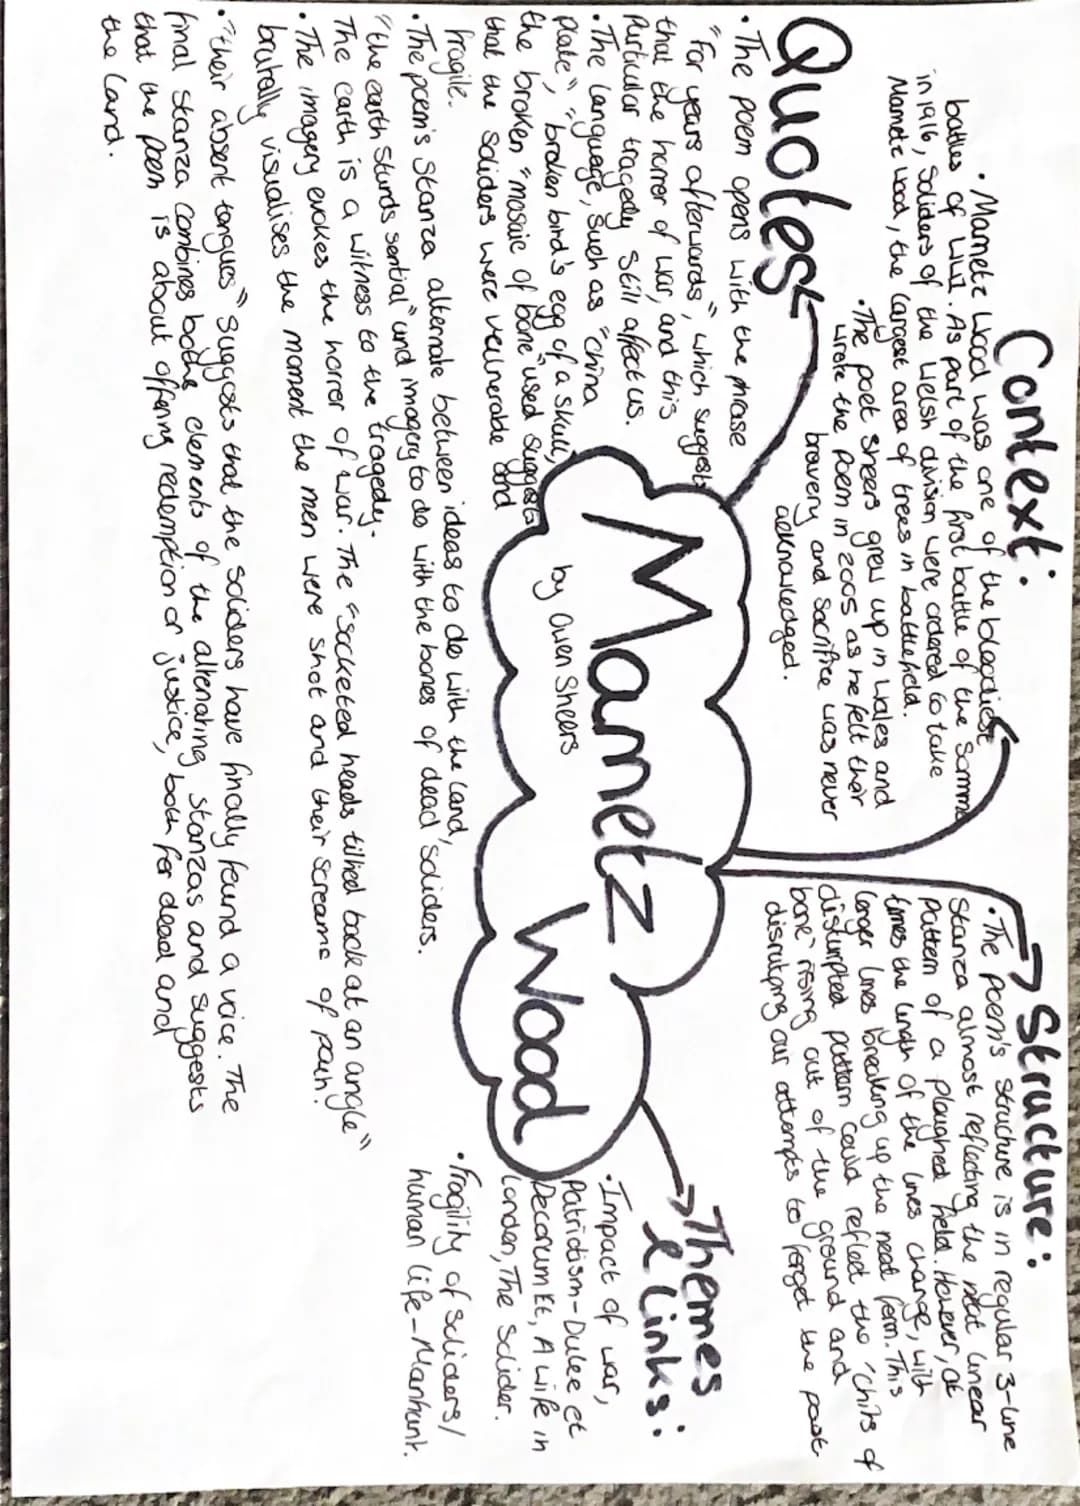 Context:
• Mametz Wood was one of the bloodiest
battles of WW1. As part of the first battle of the Somme
in 1916, Soliders of the Welsh division were ordered to take
Mametz Wood, the largest area of trees in battlefield.
• The poet Sheers grew up in Wales and
wrote the poem in 2005 as he felt their
bravery and sacrifice was never
acknowledged.
Structure:
• The poem's structure is in regular 3-line
Stanza almost reflecting the neat linear
pattern of a ploughed field. However, at
times the length of the lines change, with
longer lines breaking up the neat form. This
disturpted pattern could reflect the 'chits of
bone' rising out of the ground and
disrutping our attempts to forget the past
Quotes
• The poem opens with the phrase
"For years afterwards", which suggest
that the horror of war, and this
particular tragedy still affect us.
• The language, such as "china
plate", "broken bird's egg of a skull,
the broken "mosaic of bone" used suggests
that the soliders were vulnerable and
fragile.
• The poem's Stanza alternate between ideas to do with the land,
"the earth stands sentinal" and imagery to do with the bones of dead soliders.
The earth is a witness to the tragedy.
• The imagery evokes the horror of war. The "socketed heads tilted back at an angle"
brutally visualises the moment the men were shot and their screams of pain.
• "their absent tongues" suggests that the soliders have finally found a voice. The
final stanza combines both elements of the altenating stanzas and suggests
that the poem is about offering redemption or justice, both for dead and
the land.
Mametz Wood
by Owen Sheers
Themes
& links:
• Impact of war,
Patriotism-Dulce et
Decorum Et, A wife in
London, The Solider.
• Fragility of soliders/
human life-Manhunt.